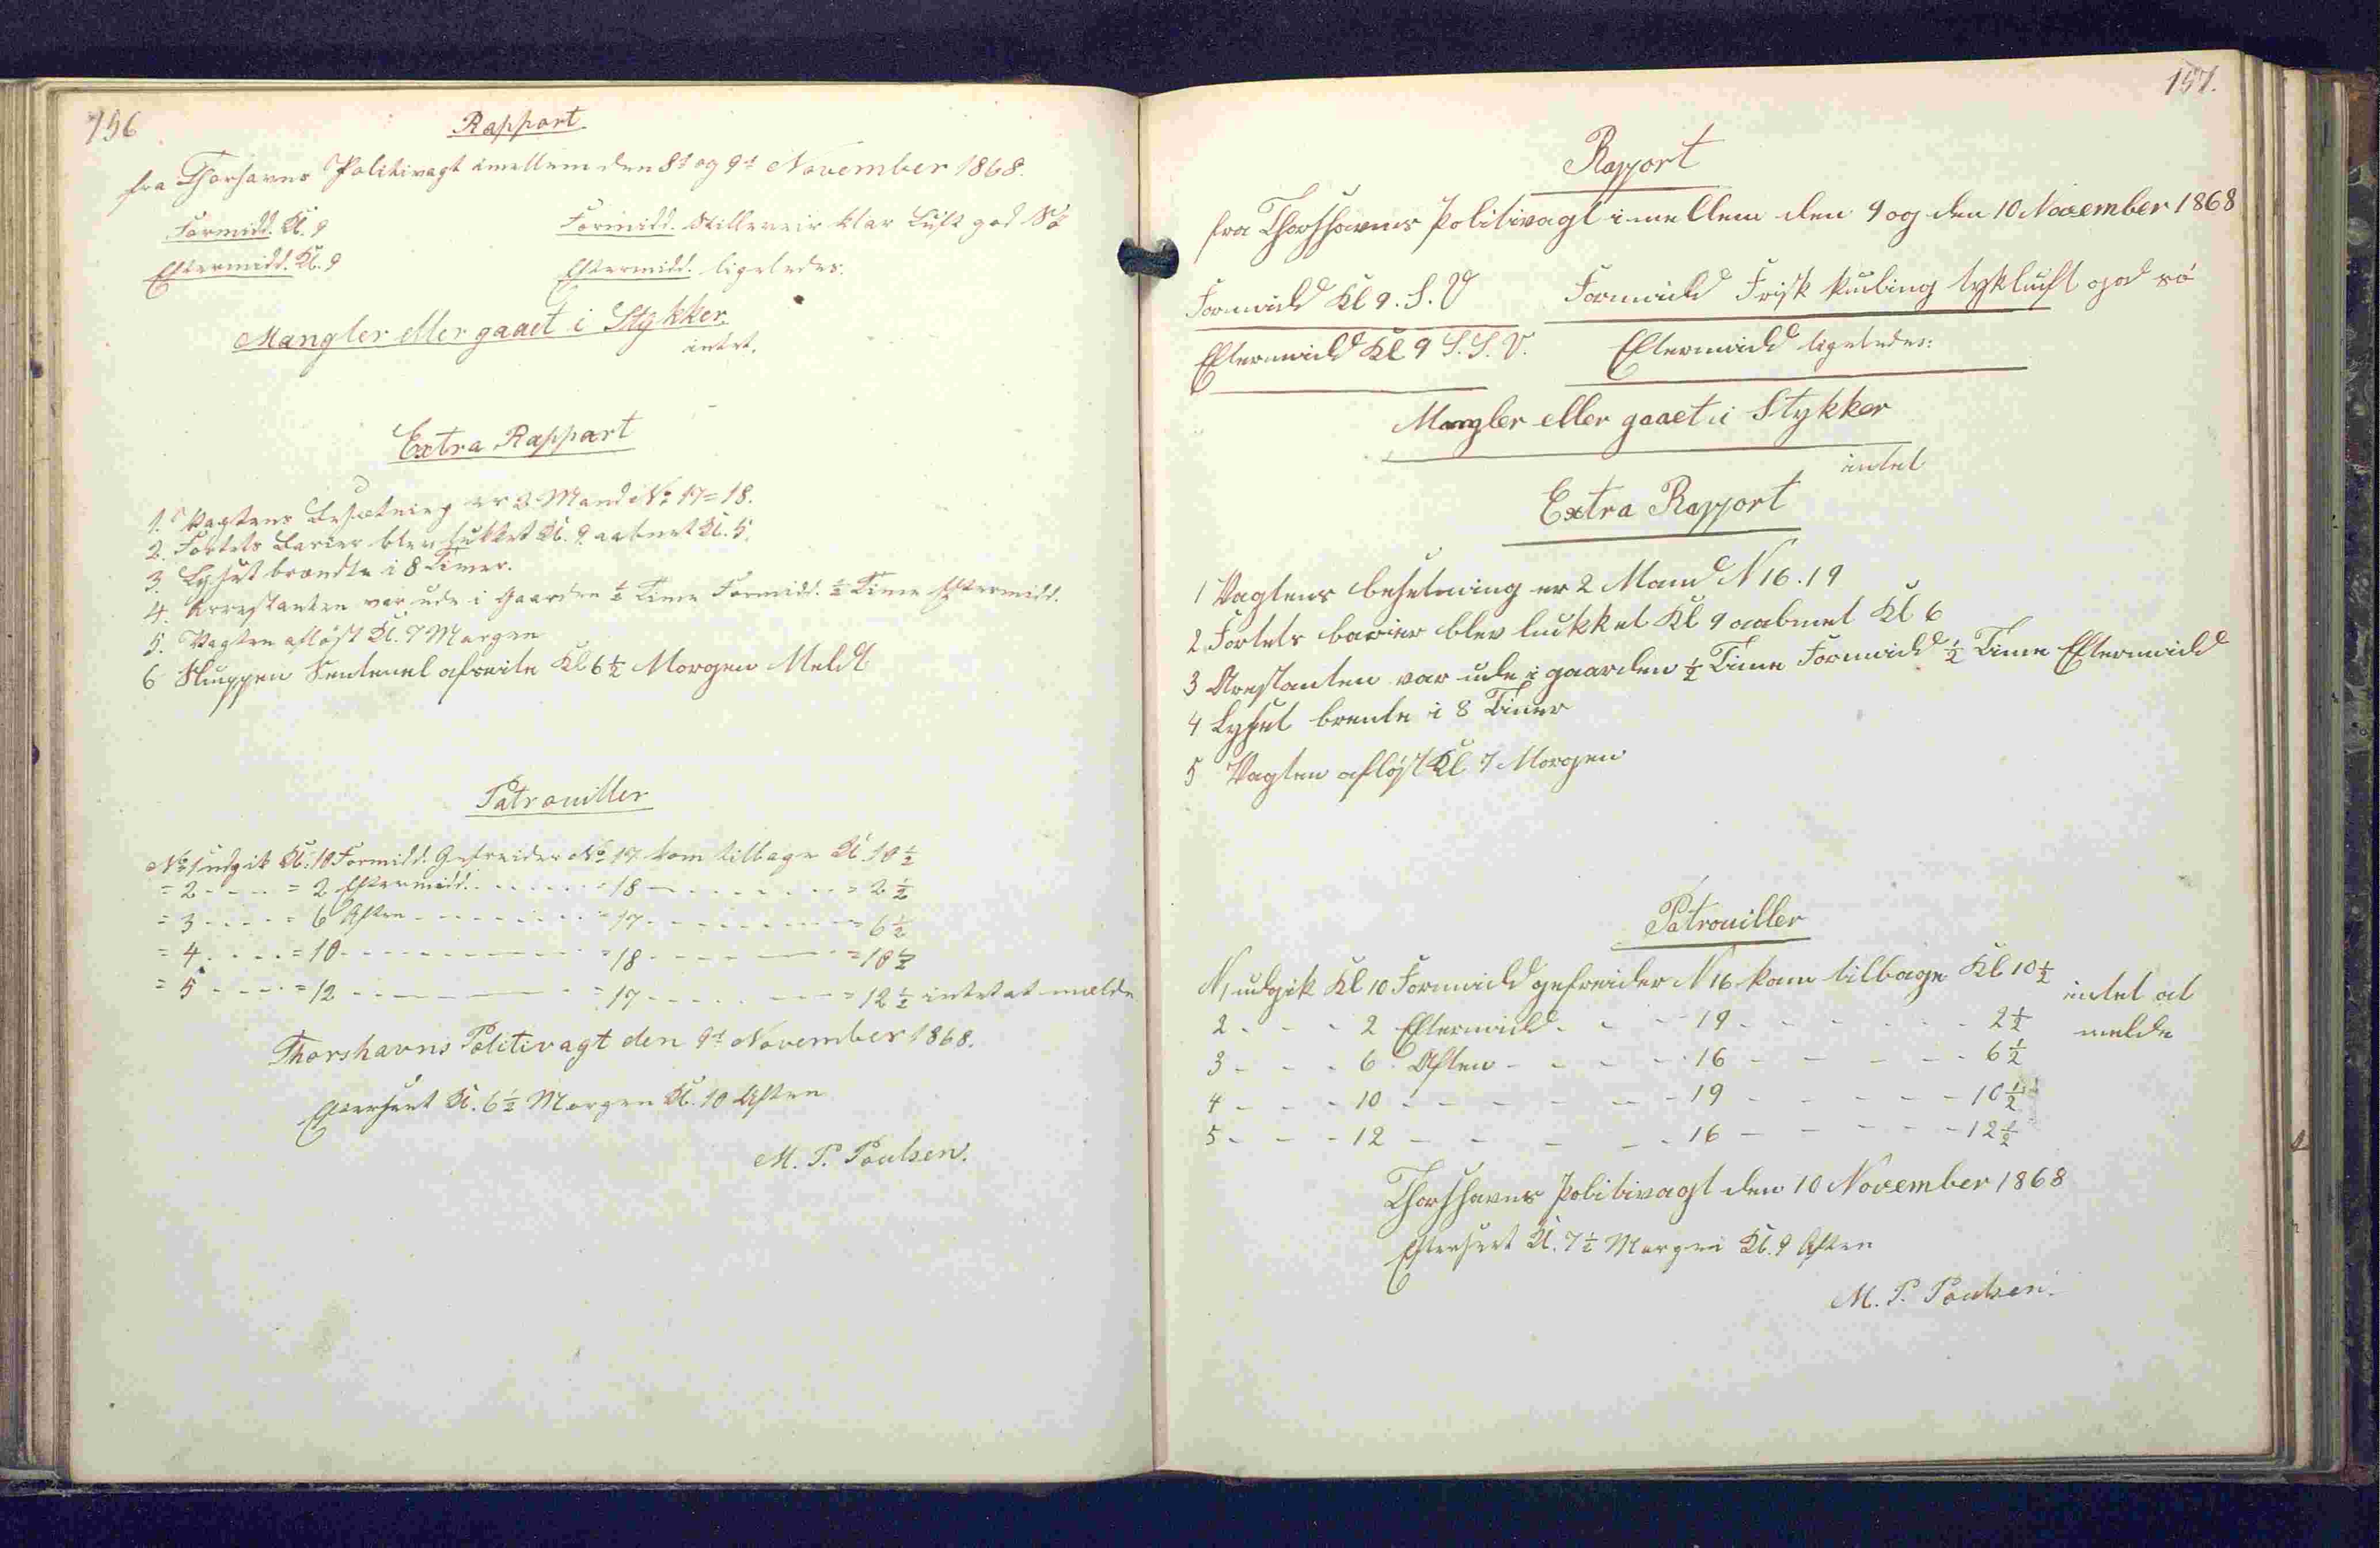 156
Rapport
fra Thorshavns Politivagt imellem den 8d og 9d November 1868.
Formidd. Kl. 9
Formidd. Stilleveir klar Luft god Sö
Eftermidd. Kl. 9
Eftermidd. ligeledes.
Mangler eller gaaet i Stykker
intet.
Extra Rapport
1. Vagtens Besætning er 2 Mand No 17 = 18.
2. Fortets Barier blev lukket Kl. 9 aabnet Kl. 5.
3. Lyset brændte i 8 Timer.
4. Arrestanten var ude i Gaarden ½ Time Formidd. ½ Time Eftermidd.
5. Vagten aflöst Kl. 7 Morgen
6 Sluppen Sentenel afseilte Kl 6½ Morgen Meldt
Patrouiller
No 1 udgik Kl. 10 Formidd. Gefreider No 17 kom tilbage Kl. 10½
= 2 - - - - = 2 Eftermidd. - - - - - = 18 - - - - - - = 2½
= 3 - - - - = 6 Aften - - - - - - = 17 - - - - - - = 6½
= 4 - - - - = 10 - - - - - - - = 18 - - - - - - = 10½
= 5 - - - - = 12 - - - - - - - = 17 - - - - - - = 12½ intet at melde
Thorshavns Politivagt den 9d November 1868.
Efterseet Kl. 6½ Morgen Kl. 10 Aften
M. P. Poulsen.
157.
Rapport
fra Thorshavns Politivagt imellem den 9 og den 10 November 1868
Formidd Kl 9. S. V
Formidd Frisk kuling tykluft god sö
Eftermidd Kl 9 S. S. V.
Eftermidd ligeledes:
Mangler eller gaaet i Stykker
intet
Extra Rapport
1 Vagtens besetning er 2 Mand N 16. 19
2 Fortets barier blev lukket Kl 9 aabnet Kl 6
3 Arestanten var ude i gaarden ½ Time Formidd ½ Time Eftermidd
4 Lyset brente i 8 Timer
5 Vagten aflöst Kl 7 Morgen
Patrouiller
N 1 udgik Kl 10 Formidd gefreider N 16 kom tilbage Kl 10½ intet at
2 - - - 2 Eftermidd - - - 19 - - - - - 2½ melde
3 - - - 6 Aften - - - - 16 - - - - - 6½
4 - - - 10 - - - - - 19 - - - - - 10½
5 - - - 12 - - - - - 16 - - - - - 12½
Thorshavns Politivagt den 10 November 1868
Efterseet Kl. 7½ Morgen Kl. 9 Aften
M. P. Poulsen.